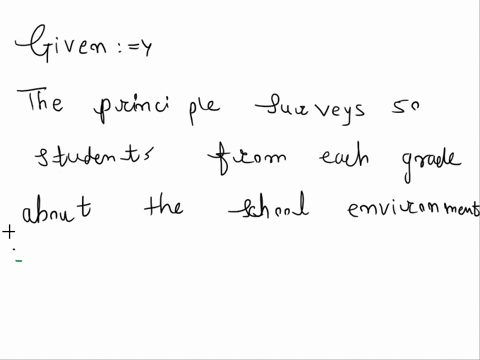 Given :=y
The principle surveys 50
students from each grade
about the school environment